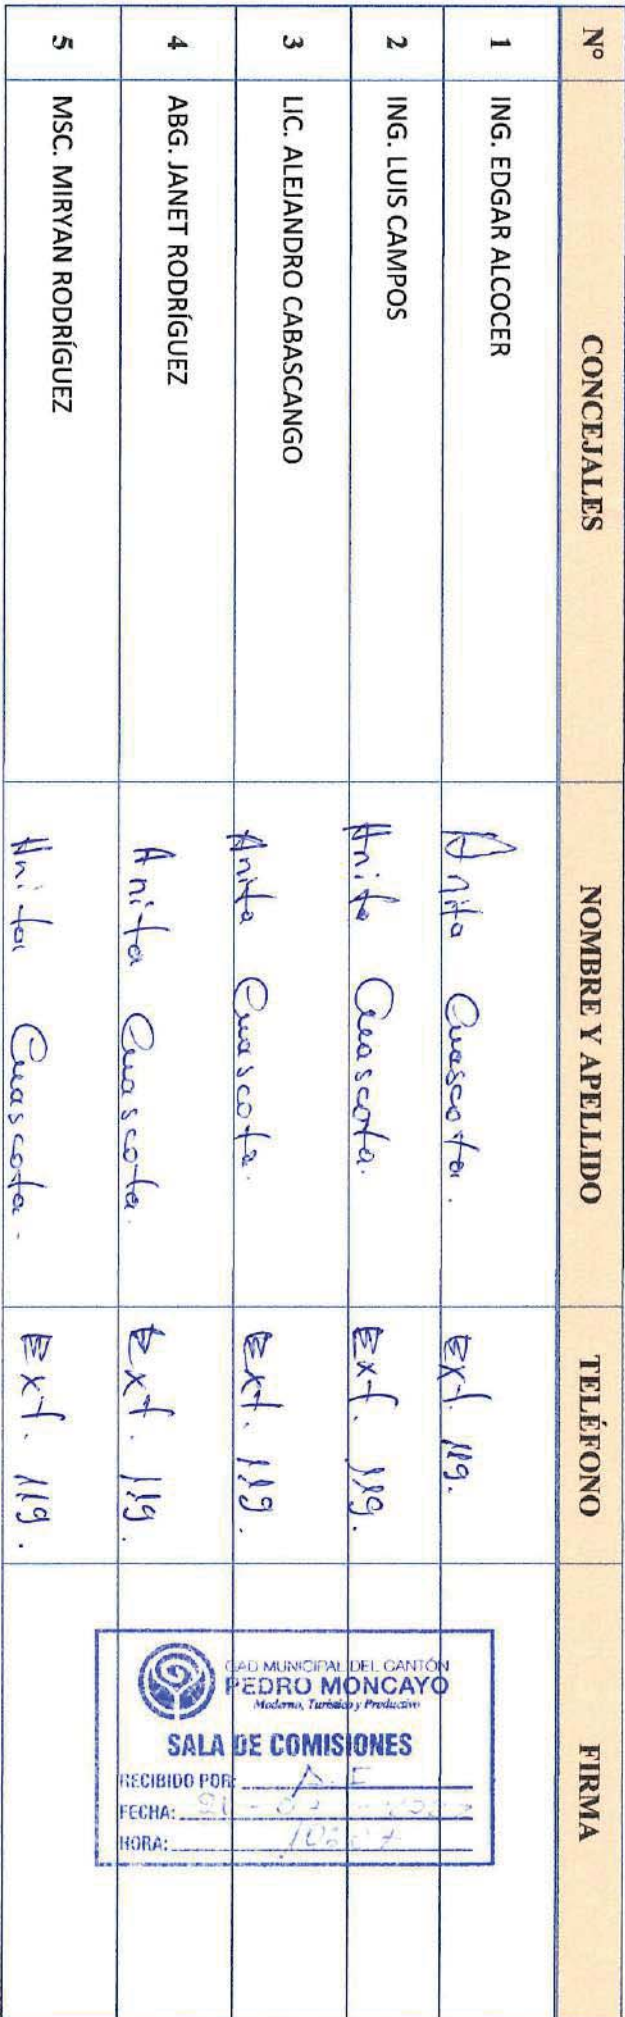 N° CONCEJALES NOMBRE Y APELLIDO TELÉFONO FIRMA
1 ING. EDGAR ALCOCER Anita Cuascota. Ext. 119.
2 ING. LUIS CAMPOS Anita Cuascota. Ext. 119.
3 LIC. ALEJANDRO CABASCANGO Anita Cuascota. Ext. 119.
4 ABG. JANET RODRÍGUEZ Anita Cuascota. Ext. 119.
5 MSC. MIRYAN RODRÍGUEZ Anita Cuascota. Ext. 119.
GAD MUNICIPAL DEL CANTÓN
PEDRO MONCAYO
Moderno, Turístico y Productivo
SALA DE COMISIONES
RECIBIDO POR:
FECHA:
HORA: